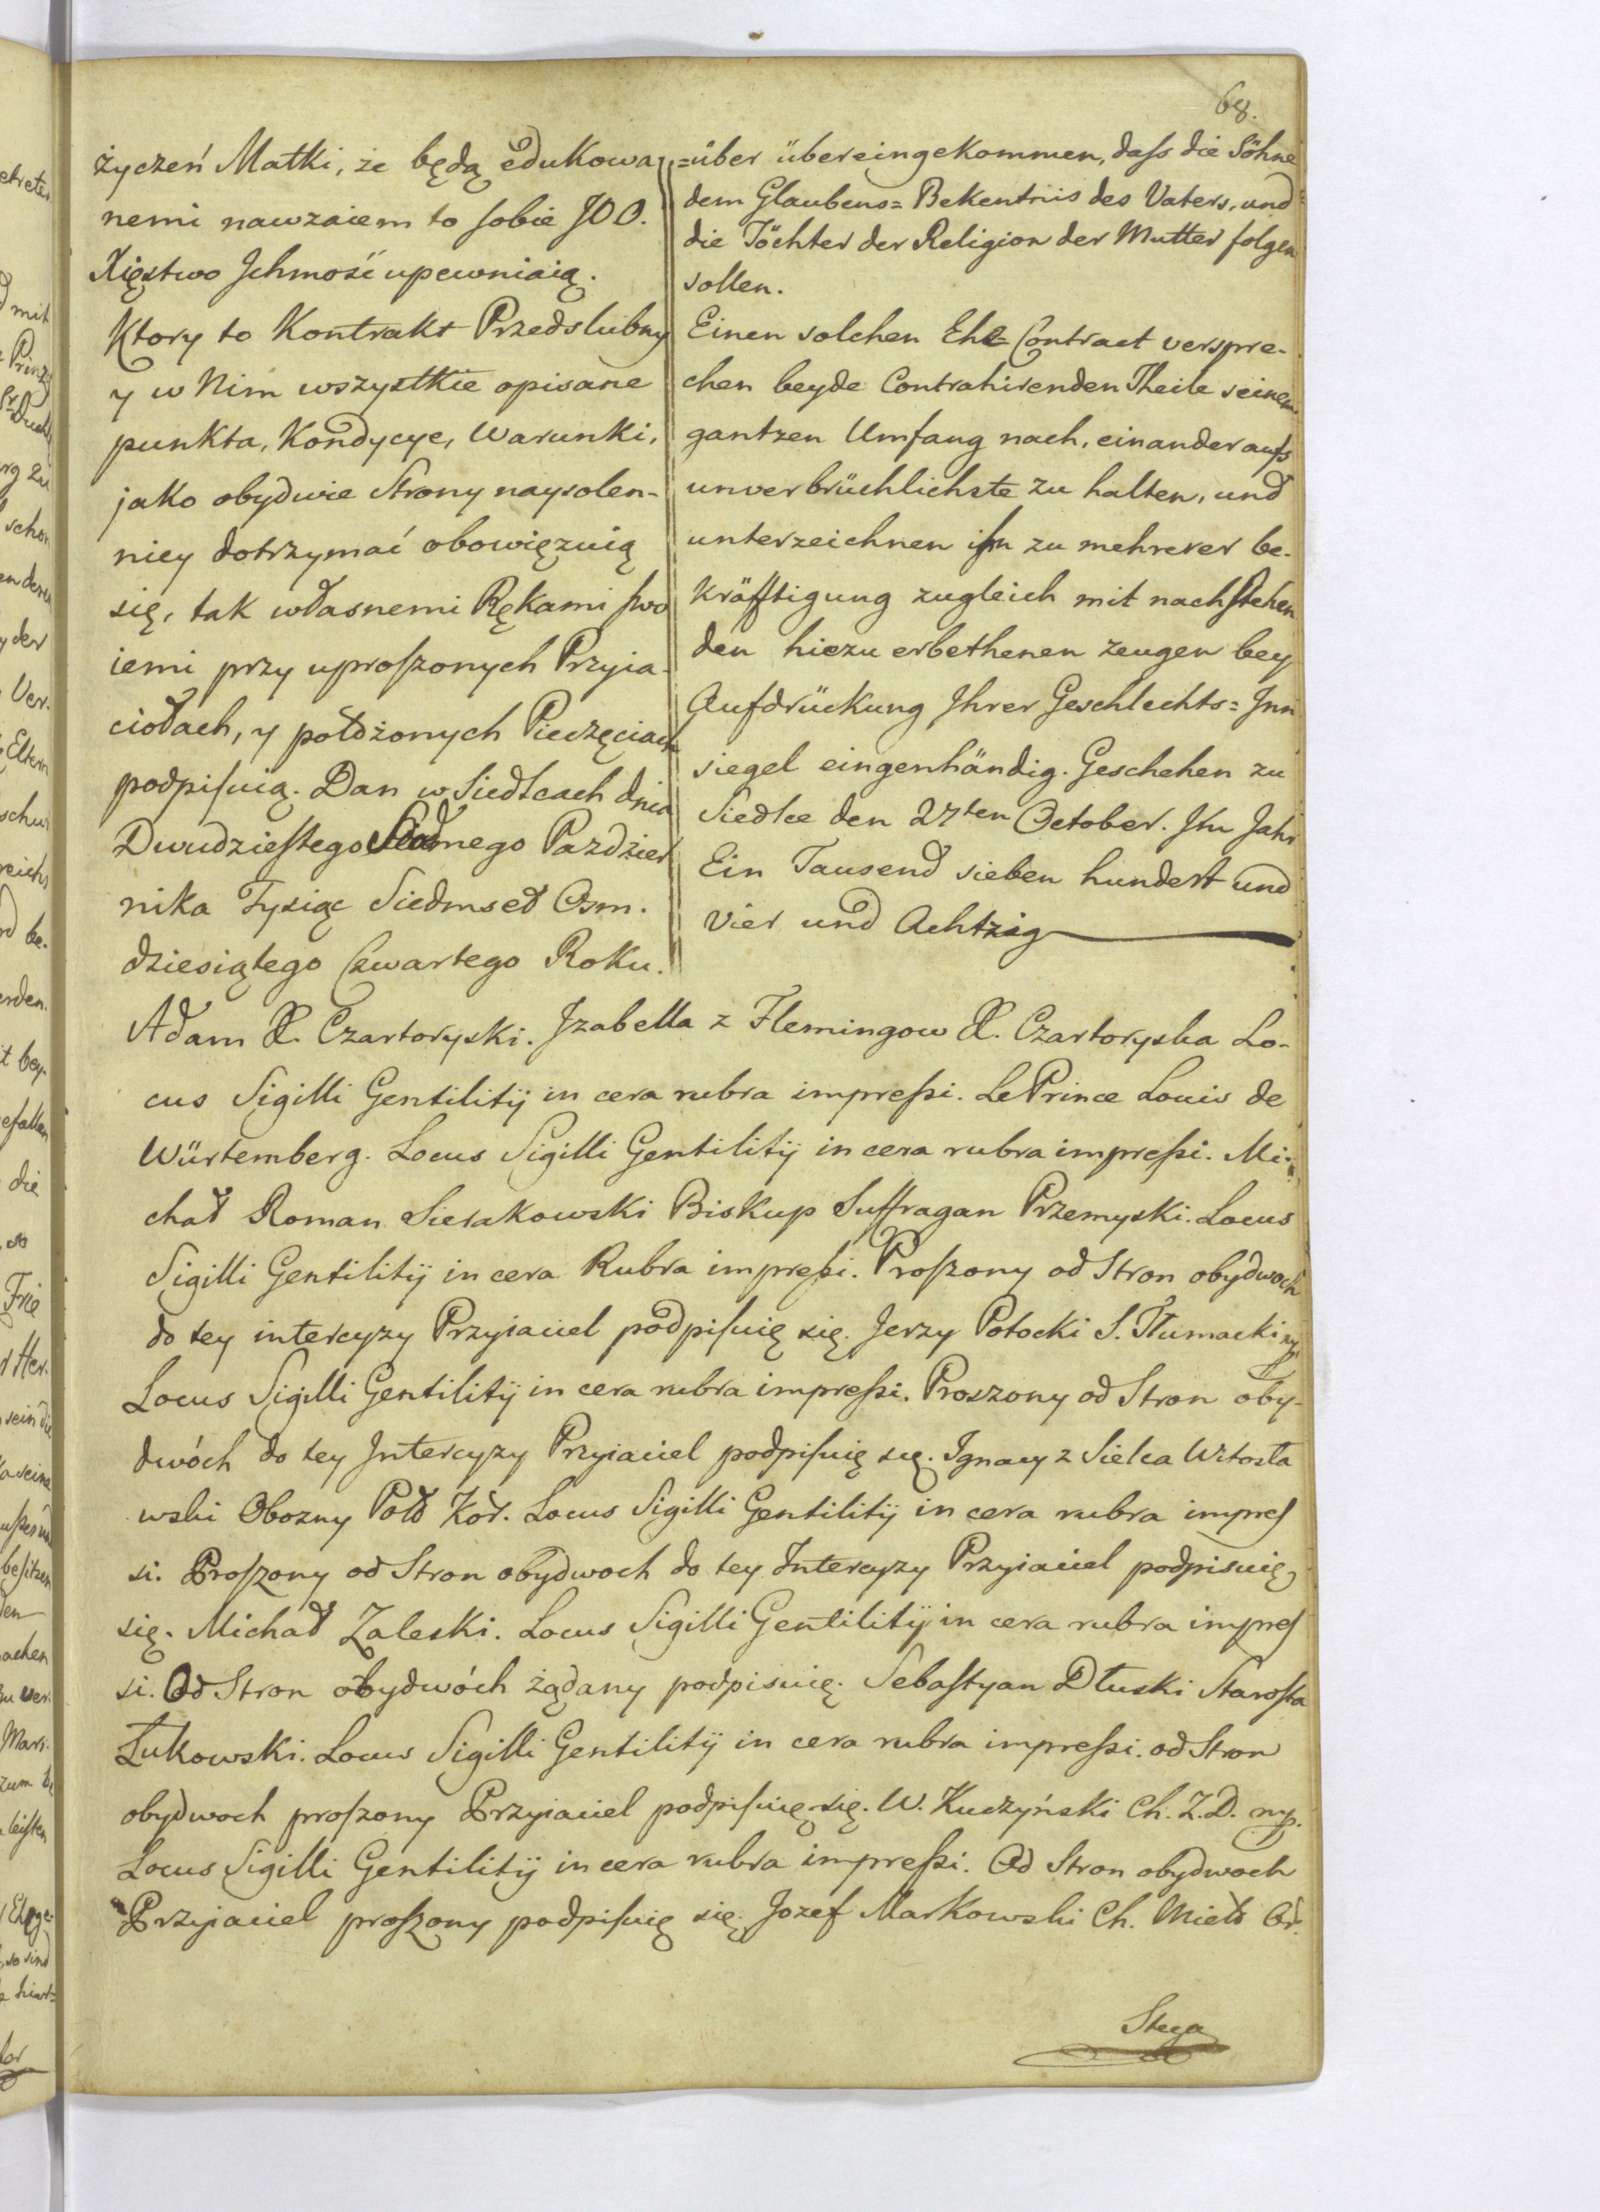 68.
życzeń Matki, że będą edukowa
nemi nawzaiem to sobie JOO.
Xięstwo Jchmość upewniaią.
Ktory to Kontrakt Przedslubny
y w Nim wszystkie opisane
punkta, Kondycye, Warunki,
jako obydwie Strony naysolen-
niey dotrzymać obowięzuią
się, tak własnemi Rękami swo
iemi przy uproszonych Przyia-
ciołach, y położonych Pieczęciach
podpisuią. Dan w Siedlcach dnia
Dwudziestego Siodmego Pazdzier
nika Tysiąc Siedmset Osm.
dziesiątego Czwartego Roku.
=über übereingekommen, dass die Söhne
dem Glaubens= Bekentnis des Vaters, und
die Töchter der Religion der Mutter folgen
sollen.
Einen solchen Ehe= Contract verspre-
chen beyde Contrahirenden Theile seinem
gantzen Umfang nach, einander aufs
unverbrüchlichste zu halten, und
unterzeichnen ihn zu mehrerer be-
kräfftigung zugleich mit nachstehen
den hiezu erbethenen zeugen bey
Aufdrückung Jhrer Geschlechts= Jnn
siegel eingenhändig. Geschehen zu
Siedlce den 27ten October. Jm Jahr
Ein Tausend sieben hundert und
vier und Achtzig
Adam X. Czartoryski. Jzabella z Flemingow X. Czartoryska Lo-
cus Sigilli Gentilitij in cera rubra impressi. Le Prince Louis de
Würtemberg. Locus Sigilli Gentilitij in cera rubra impressi. Mi-
chał Roman Sierakowski Biskup Suffragan Przemyski. Locus
Sigilli Gentilitij in cera Rubra impressi. Proszony od Stron obydwoch
do tey intercyzy Przyiaciel podpisuię się. Jerzy Potocki S. Tłumacki mp.
Locus Sigilli Gentilitij in cera rubra impressi. Proszony od Stron oby-
dwóch do tey Jntercyzy Przyiaciel podpisuię się. Ignacy z Sielca Witosła
wski Obozny Poł Kor. Locus Sigilli Gentilitij in cera rubra impres
si. Proszony od Stron obydwoch do tey Intercyzy Przyiaciel podpisuię
się. Michał Zaleski. Locus Sigilli Gentilitij in cera rubra impres
si. Od Stron obydwóch żądany podpisuię. Sebastyan Dłuski Starosta
Łukowski. Locus Sigilli Gentilitij in cera rubra impressi. od Stron
obydwoch proszony Przyiaciel podpisuię się. W. Kuczyński Ch. Z. D. mp.
Locus Sigilli Gentilitij in cera rubra impressi. Od Stron obydwoch
Przyjaciel proszony podpisuię się. Jozef Markowski Ch. Miel Or.